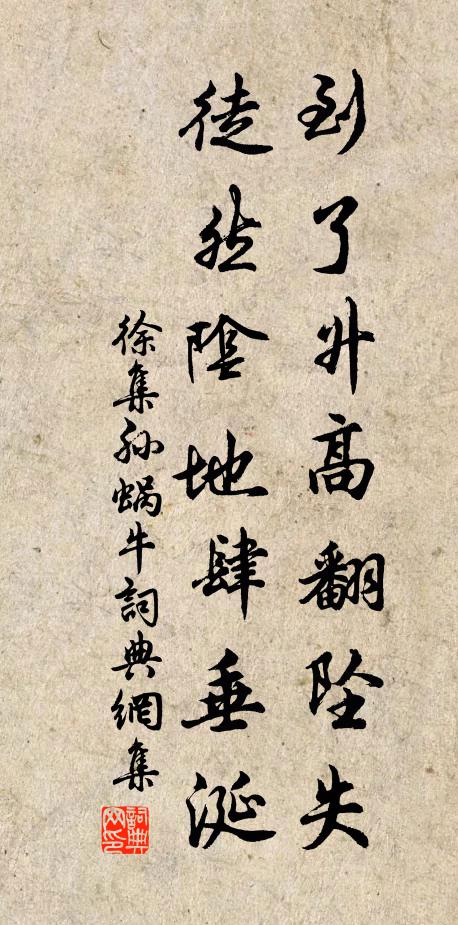 到了升高翻坠失
徒然陰地肆垂涎
徐集孙蜗牛詞典網集
詞典网印